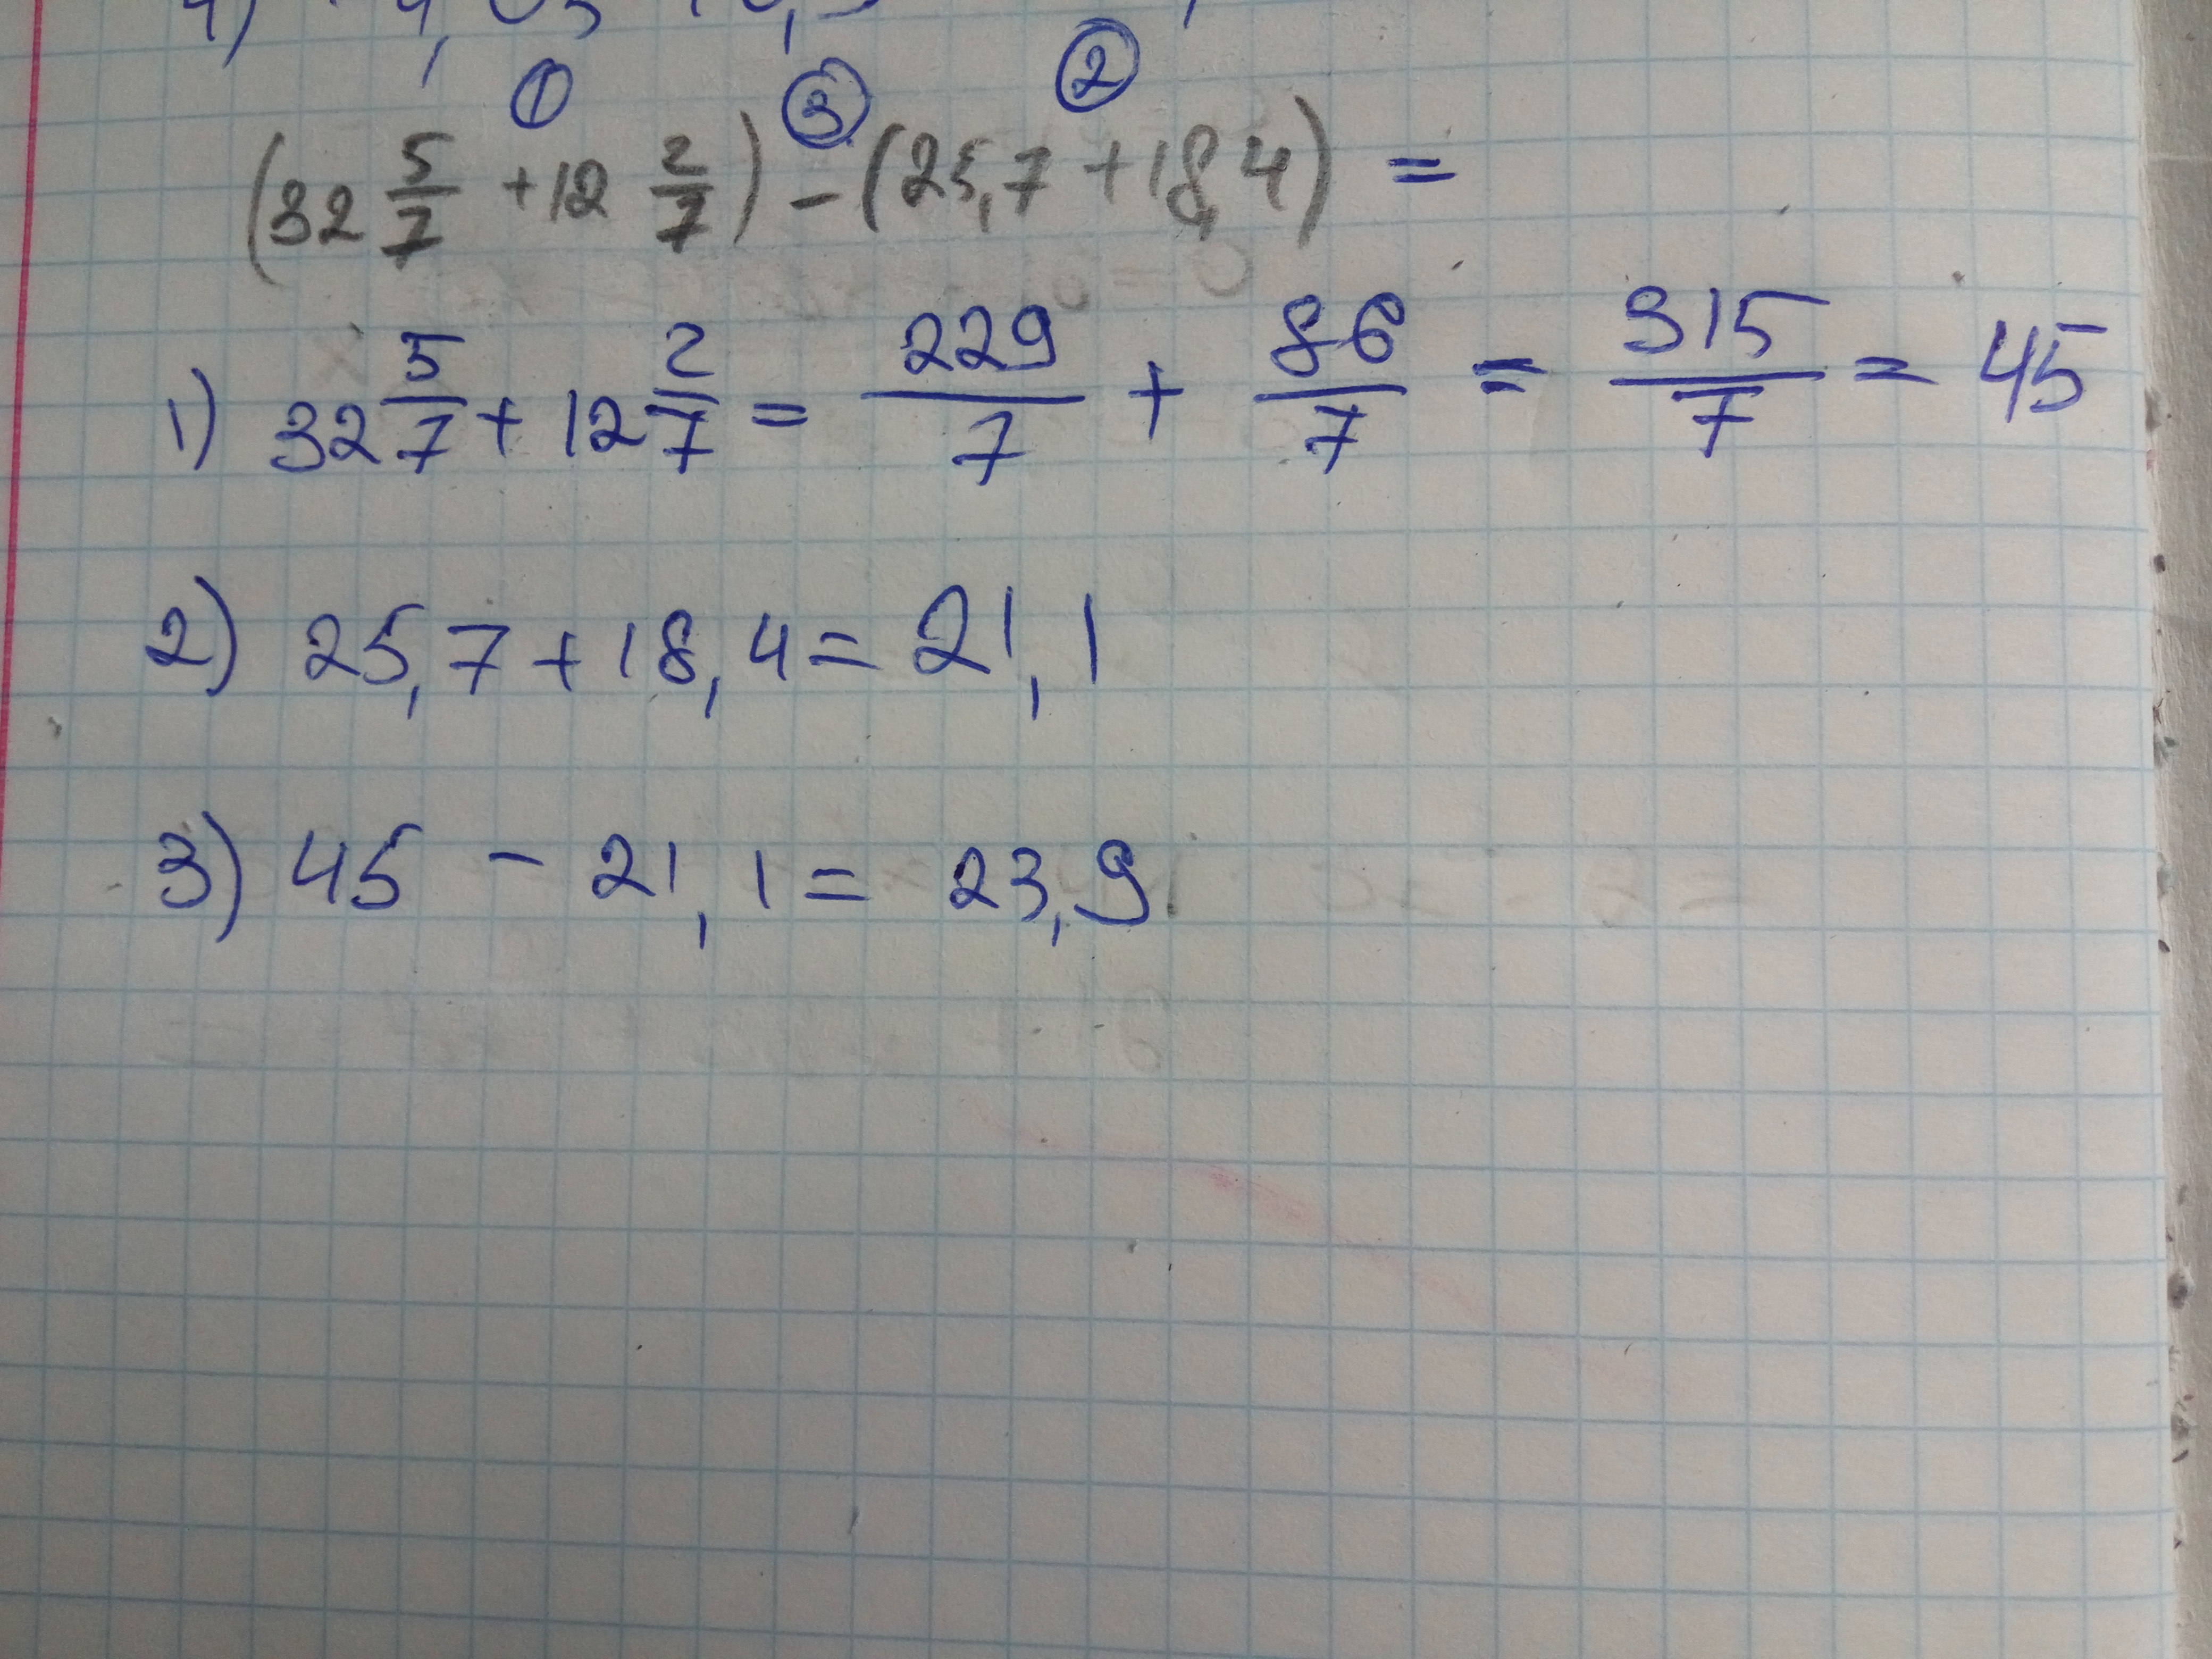 ① ③ ②
(32 5/7 + 12 2/7) - (25,7 + 18,4) =
1) 32 5/7 + 12 2/7 = 229/7 + 86/7 = 315/7 = 45
2) 25,7 + 18,4 = 21,1
3) 45 - 21,1 = 23,9